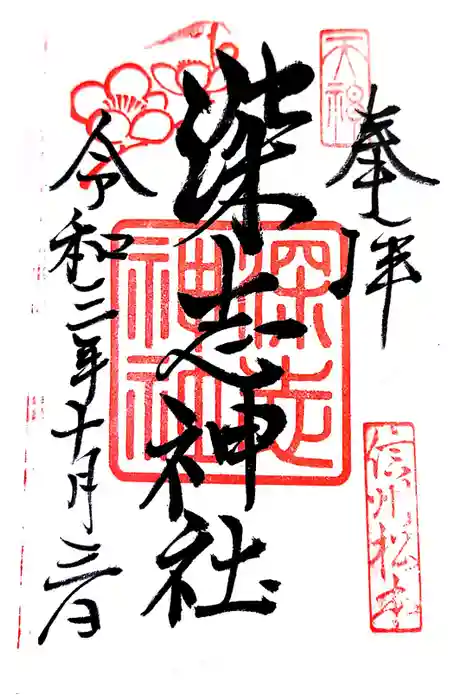 天神
奉拝
信州松本
深志神社
深志神社
令和三年十月三日